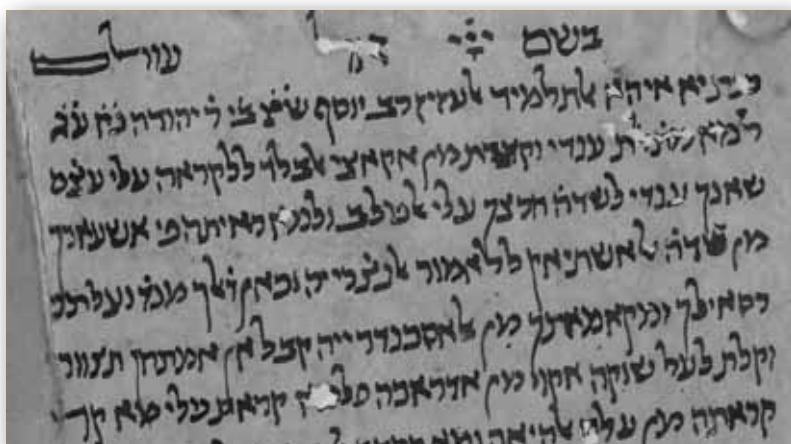 בשם ייי אל עולם
איהא אלתלמיד אלעזיז רב יוסף ש̇צ̇ ב̇ר̇ ר̇ יהודה נ̇ע̇
למא מתלת ענדי וקצדת מן אקאצי אלבלד ללקראה עלי עט̇ם
שאנך ענדי לשדה̈ חרצך עלי אלטלב ולמא ראיתה פי אשעארך
מן שדה̈ אלאשתיאק ללאמור אלנט̇ריה וכאן ד̇לך מנד̇ וצלתני
רסאילך ומקאמאתך מן אלאסכנדרייה קבל אן אמתחן תצורך
וקלת לעל שוקה אקוי מן אדראכה פלמא קראת עלי מא קד
קראתה מן עלם אלהיאה ומא